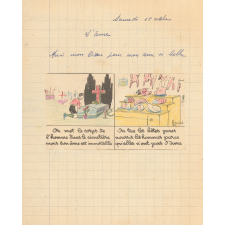 Samedi 22 octobre
L'âme
On met le corps de
l'homme dans le cimetière
mais son âme est immortelle
On tue les bêtes pour
nourrir les hommes parce
qu'elles n'ont pas d'âme